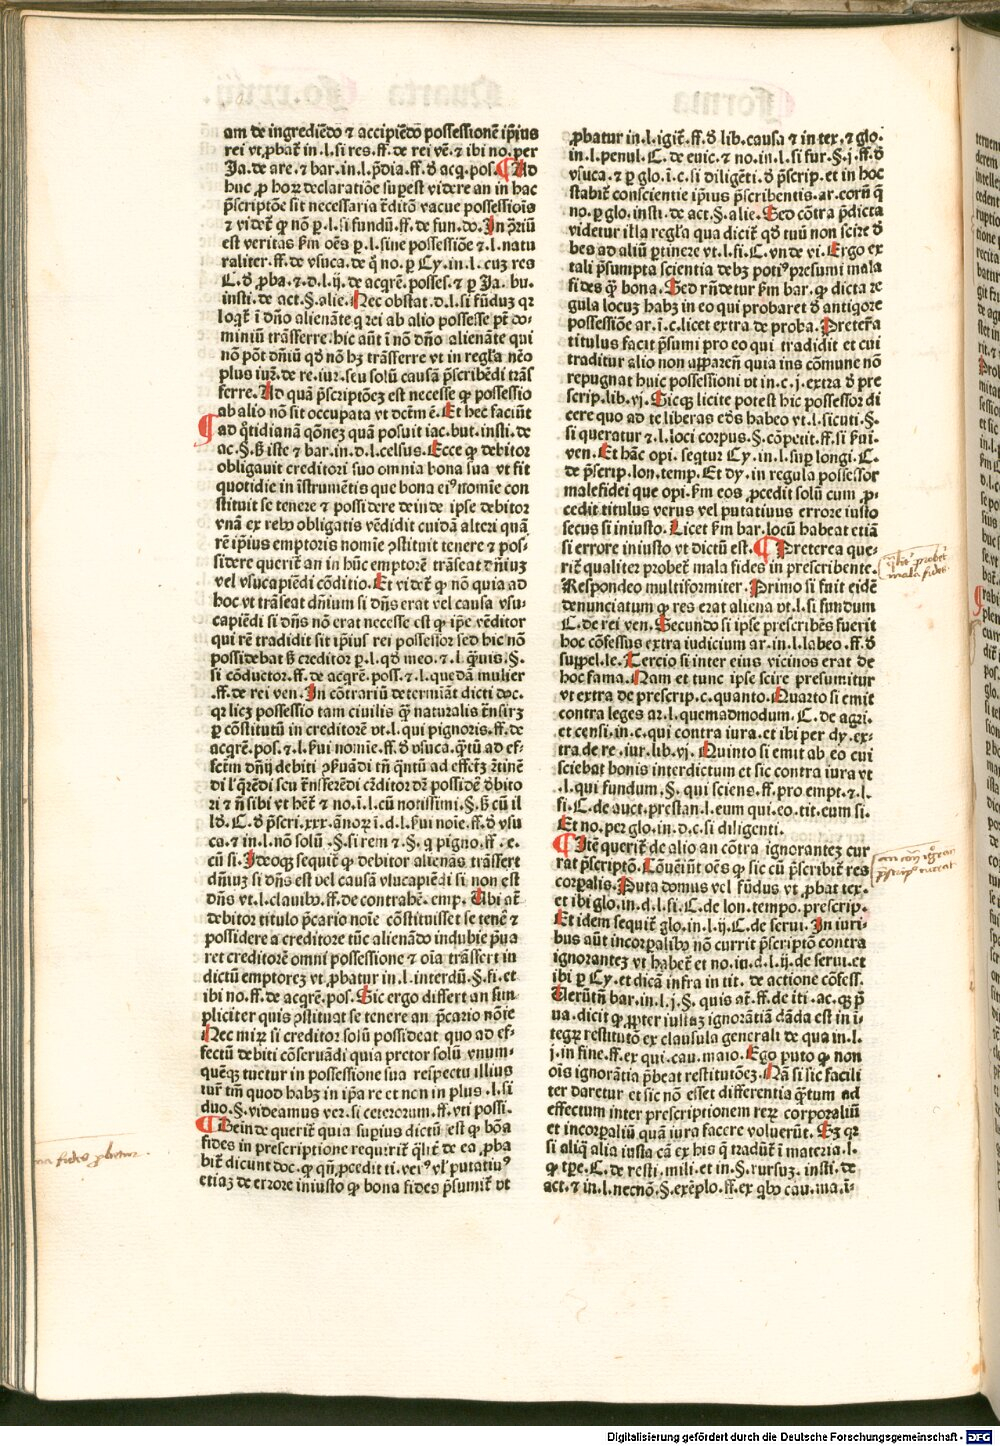 am de ingrediēdo ⁊ accipiēdo possessionē ip̄ius
rei vt ꝓbat̄ in.l.si res.ff.de rei vē.⁊ ibi no.per
Ja.de are.⁊ bar.in.l.p̄dia.ff.đ acq.pos. ¶ Ad
huc ꝓ hoꝝ declaratiōe suꝑest videre an in hac
p̄scriptōe sit necessaria t̄ditō vacue possessiois
⁊ videt̄ ꝙ nō ꝑ.l.si fundū.ff.de fun.do. In p̄riū
est veritas k̄m oēs ꝑ.l.sine possessiōe ⁊.l.natu
raliter.ff.de vsuca.de q̄ no.ꝑ Cy.in.l.cuꝫ res
C.đ ꝓba.⁊.d.l.ij.de acqrē.posses.⁊ ꝑ Ja.bu.
insti.de act.§.alie. Nec obstat.d.l.si fūduꝫ qꝛ
loqt̄ ī dn̄o alienāte q rei ab alio possesse pt̄ do-
miniū trāsferre.hic aūt ī nō dn̄o alienāte qui
nō pōt dn̄iū qđ nō hꝫ trāsferre vt in regl̄a nēo
plus iuꝝ.de re.iur.seu solū causā p̄scribēdi trās
ferre. Ad quā p̄scriptōeꝫ est necesse ꝙ possessio
ab alio nō sit occupata vt dctm̄ ē. Et hec faciūt
¶ ad q̄tidianā qōneꝫ quā posuit iac.but.insti.de
ac.§.ß iste ⁊ bar.in.d.l.celsus. Ecce ꝙ debitor
obligauit creditori suo omnia bona sua vt fit
quotidie in īstrumētis que bona eiꝰ noīmie con
stituit se tenere ⁊ possidere deinde ipse debitor
vnā ex rebꝰ obligatis vēdidit cuidā alteri quā
rē ip̄ius emptoris nomīe ꝯstituit tenere ⁊ pos-
sidere querit̄ an in hūc emptorē trāseat dn̄iuꝫ
vel vsucapiēdi cōditio. Et videt̄ ꝙ nō quia ad
hoc vt trāseat dn̄ium si dn̄s erat vel causa vsu-
capiēdi si dn̄s nō erat necesse est ꝙ ip̄e vēditor
qui rē tradidit sit ip̄iuſ rei possessor sed hic nō
possidebat ß creditor ꝑ.l.qđ meo.⁊.l.q̄uis.§.
si cōductor.ff.de acqrē.poss.⁊.l.quedā mulier
.ff.de rei ven. In cōtrariū determiāt dicti doc.
qꝛ licꝫ possessio tam ciuilis q̄ꝫ naturalis t̄nsirꝫ
ꝑ cōstitutū in creditorē vt.l.qui pignoris.ff.de
acqrē.pos.⁊.l.ẜui nomīe.ff.đ vsuca.q̄tū ad ef-
fectm̄ dn̄ij debiti ꝯẜuādi tn̄ q̄ntū ad effectꝫ ꝛtinē
di l'q̄rēdi seu t̄nsferēdi cr̄ditor dꝛ̄ possidē đbito
ri ⁊ n̄ sibi vt hēt̄ ⁊ no.ī.l.cū notissimi.§.ß cū il
lđ.C.đ p̄scri.xxx.ānoꝝ ī.d.l.ẜui noīe.ff.đ vsu
ca.⁊ in.l.nō solū.§.si rem ⁊.§.q pigno.ff.e.
cū si. Ideoqꝫ sequit̄ ꝙ debitor alienās trāsfert
dn̄iuꝫ si dn̄s est vel causā vsucapiēdi si non est
dn̄s vt.l.clauibꝰ.ff.de contrahē.emp. Ubi at̄
debitor titulo p̄cario noīe cōstituisset se tenē ⁊
possidere a creditore tūc alienādo indubie p̄ua
ret creditorē omni possessione ⁊ oīa trāsfert in
dictū emptoreꝫ vt ꝓbatur in.l.interdū.§.fi.et
ibi no.ff.de acqrē.pos. Sic ergo differt an sim
pliciter quis ꝯstituat se tenere an p̄cario nōīe
Nec miꝝ si creditor solū possideat quo ad ef-
fectū debiti cōseruādi quia pretor solū vnum-
quēqꝫ tuetur in possessione sua respectu illius
iur̄ tm̄ quod habꝫ in ip̄a re et non in plus.l.si
duo.§.videamus ver.si ceterorum.ff.vti possi.
¶ Deinde querit̄ quia suꝑius dictū est ꝙ bōa
fides in prescriptione requirit̄ q̄lit̄ de ea ꝓba
bit̄ dicunt doc.ꝙ qn̄ ꝓcedit ti.veiꝰ vl' putatiuꝰ
etiaꝫ de errore iniusto ꝙ bona fides p̄sumit̄ vt
ꝓbatur in.l.igit̄.ff.đ lib.causa ⁊ in tex.⁊ glo.
in.l.penul.C.de euic.⁊ no.in.l.si fur.§.j.ff.đ
vsuca.⁊ ꝑ glo.ī.c.si diligēti.đ p̄scrip.et in hoc
stabit̄ conscientie ip̄ius p̄scribentis.ar.corn̄ q̄
no.ꝑ glo.insti.de act.§.alie. Sed cōtra p̄dicta
videtur illa regl̄a qua dicit̄ qđ tuū non scire đ
bes ad aliū ꝑtinere vt.l.fi.C.vnde vi. Ergo ex
tali p̄sumpta scientia debꝫ potiꝰ presumi mala
fides q̄ꝫ bona. Sed rn̄detur k̄m bar.ꝙ dicta re
gula locuꝫ habꝫ in eo qui probaret đ antiqore
possessiōe ar.ī.c.licet extra de proba. Preterā
titulus facit p̄sumi pro eo qui tradidit et cui
traditur alio non apparen̄ quia ius cōmune nō
repugnat huic possessioni vt in.c.j.extra đ pre
scrip.lib.vj. Sicqꝫ licite potest hic possessor di
cere quo ad te liberas eđs habeo vt.l.sicuti.§.
si queratur ⁊.l.loci corpus.§.cōpetit.ff.si ẜui-
ven. Et hāc opi.seqtur Cy.in.l.suꝑ longi.C.
de p̄scrip.lon.temp. Et dy.in regula possessor
malefidei que opi.k̄m eos ꝓcedit solū cum ꝓ-
cedit titulus verus vel putatiuus errore iusto
secus si iniusto. Licet k̄m bar.locū habeat etiā
si errore iniusto vt dictū est. ¶ Preterea que-
rit̄ qualiter probet̄ mala fides in prescribente.
Respondeo multiformiter. Primo si fuit eidē
denunciatum ꝙ res erat aliena vt.l.si fundum
C.de rei ven. Secundo si ipse prescribēs fuerit
hoc cōfessus extra iudicium ar.in.l.labeo.ff.đ
suppel.le. Tercio si inter eius vicinos erat de
hoc fama. Nam et tunc ipse scire presumitur
vt extra de prescrip.c.quanto. Quarto si emit
contra leges ar.l.quemadmodum.C.de agri.
et censi.in.c.qui contra iura.et ibi per dy.ex-
tra.de re.iur.lib.vj. Quinto si emit ab eo cui
sciebat bonis interdictum et sic contra iura vt
.l.qui fundum.§.qui sciens.ff.pro empt.⁊.l.
fi.C.de auct.prestan.l.eum qui.eo.tit.cum si.
Et no.per glo.in.d.c.si diligenti.
¶ Itē querit̄ de alio an cōtra ignorantez cur
rat p̄scriptō. Cōueiūt oēs ꝙ sic cū p̄scribit̄ res
corꝑalis. Puta domus vel fūdus vt ꝓbat tex.
et ibi glo.in.d.l.si.C.de lon.tempo.prescrip.
Et idem sequit̄ glo.in.l.ij.C.de serui. In iuri-
bus aūt incorꝑalibꝰ nō currit p̄scriptō contra
ignorantez vt habet̄ et no.in.d.l.ij.de serui.et
ibi ꝑ Cy.et dicā infra in tit.de actione cōfess.
Uerūtn̄ bar.in.l.j.§.quis at̄.ff.de iti.ac.qꝫ p̄
ua.dicit ꝙ ꝓpter iustaꝫ ignorātiā dāda est in ī-
tegꝝ restitutō ex clausula generali de qua in.l.
j.in fine.ff.ex qui.cau.maio. Ego puto ꝙ non
oīs ignorātia p̄beat restitutōeꝫ. Nā si sic facili
ter daretur et sic nō esset differentia q̄tum ad
effectum inter prescriptionem reꝝ corporaliū
et incorꝑaliū quā iura facere voluerūt. Eꝫ qꝛ
si aliq̄ alia iusta cā ex his q̄ tradūt̄ ī materia.l.
ꝙ tꝑe.C.de resti.mili.et in.§.rursuꝫ.insti.de
act.⁊ in.l.necnō.§.exēplo.ff.ex qbꝰ cau.ma.ī-
qualit̄ probet̄
mala fides.
an contra ignoran
p̄scriptio currat
na fides probetur.
Digitalisierung gefördert durch die Deutsche Forschungsgemeinschaft - DFG